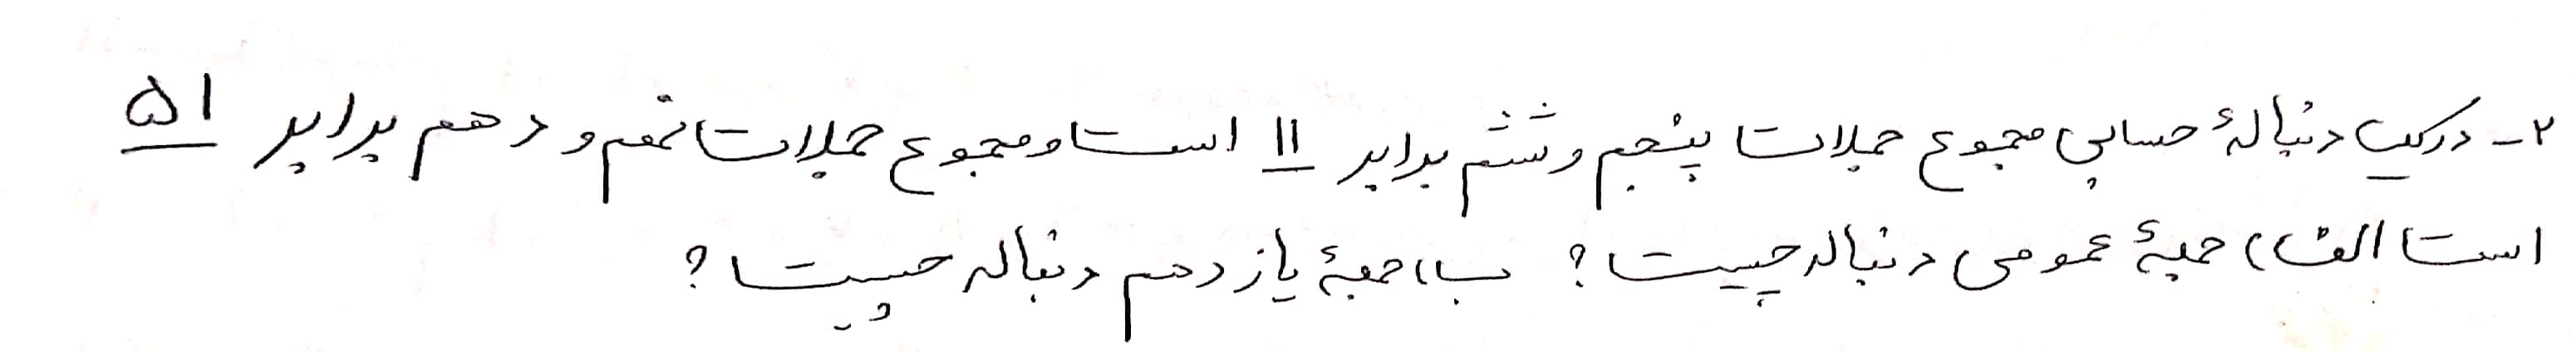 ۲- در یک دنبالهٔ حسابی مجموع جملات پنجم و ششم برابر ۱۱ است و مجموع جملات نهم و دهم برابر ۵۱
است الف) جملهٔ عمومی دنباله چیست؟ ب) جملهٔ یازدهم دنباله چیست؟